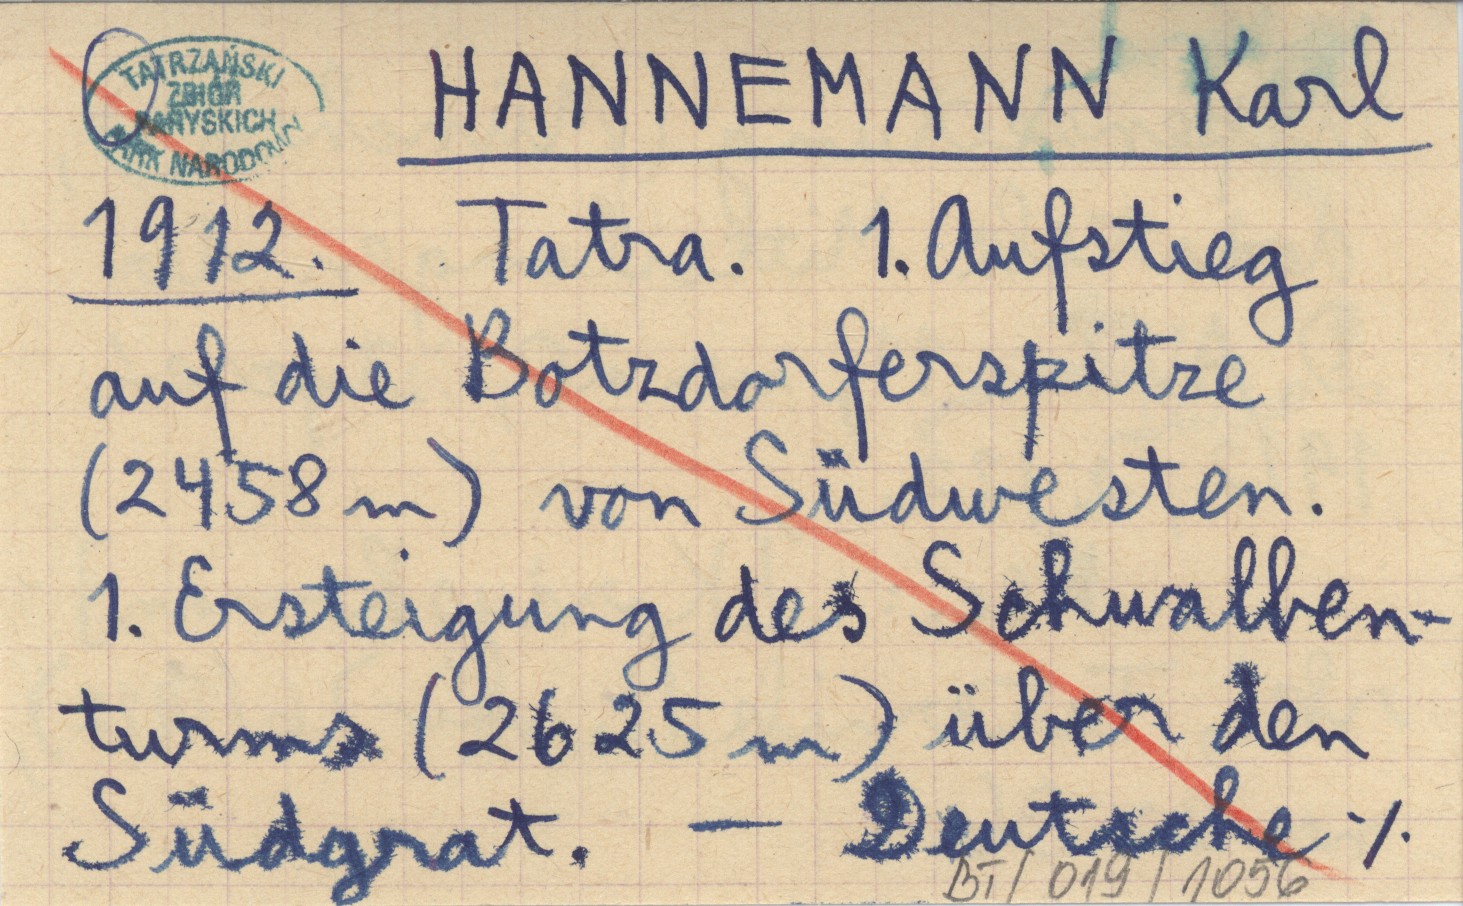 TATRZAŃSKI
ZBIÓR
PARYSKICH
PARK NARODOWY
HANNEMANN Karl
1912. Tatra. 1. Aufstieg
auf die Botzdorferspitze
(2458 m) von Südwesten.
1. Ersteigung des Schwalben-
turms (2625 m) über den
Südgrat. — Deutsche ·/.
BT/019/1056